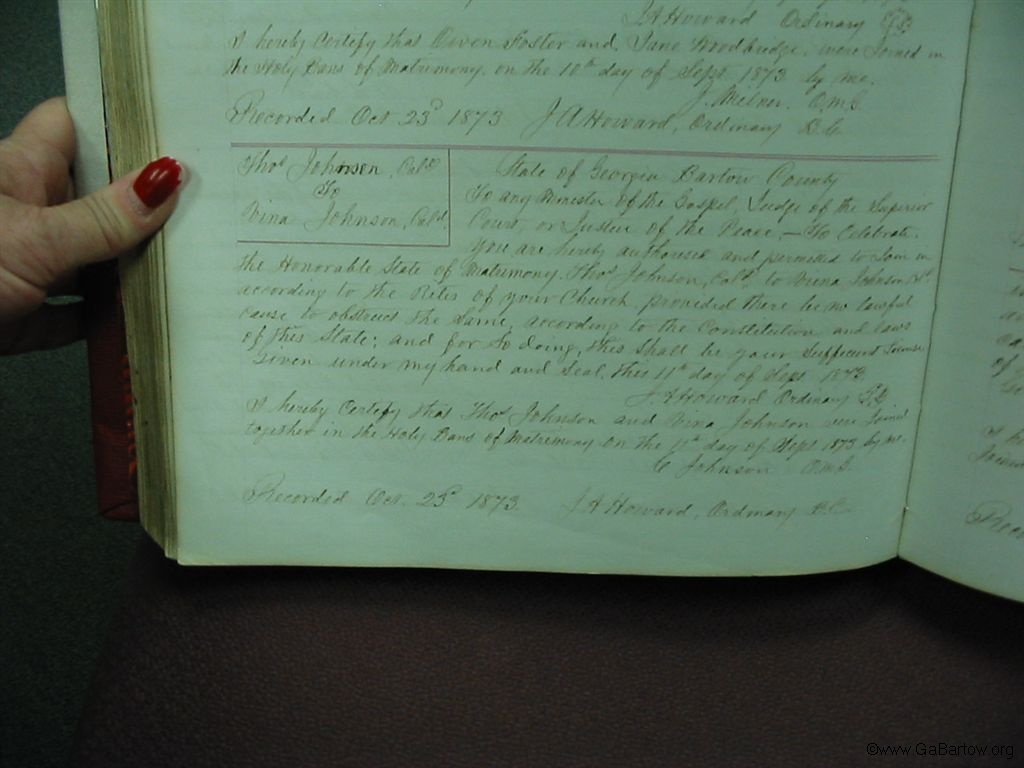 J A Howard Ordinary
I hereby Certify that Owen Foster and Jane Woodbridge, were Joined in
the Holy Bans of Matrimony, on the 10th day of Sept 1873 by me.
J. Milner. O.M.G.
Recorded Oct 23d 1873 J A Howard, Ordinary B.C.
Thos Johnson, Cold
To
Vina Johnson, Cold
State of Georgia Bartow County
To any Minister of the Gospel, Judge of the Superior
Court, or Justice of the Peace,—To Celebrate.
You are hereby authorised and permitted to Join in
the Honorable State of Matrimony. Thos Johnson, Cold, to Vina Johnson Cold
according to the Rites of your Church, provided there be no lawful
cause to obstruct the Same, according to the Constitution and laws
of this State; and for So doing, this Shall be your Sufficient License
Given under my hand and Seal, this 11th day of Sept 1873
J A Howard Ordinary
I hereby Certify that Thos Johnson and Vina Johnson were Joined
together in the Holy Bans of Matrimony on the 11th day of Sept 1873 by me.
C Johnson O.M.G.
Recorded Oct. 23d 1873. J A Howard, Ordinary B.C.
©www.GaBartow.org